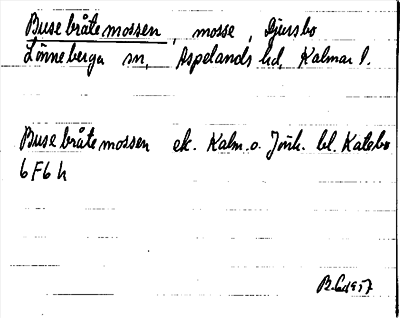 Busebråtemossen, mosse, Djursbo
Lönneberga sn, Aspelands hd, Kalmar l.
Busebråtemossen ek. Kalm. o. Jönk. bl. Katebo
6 F 6 h